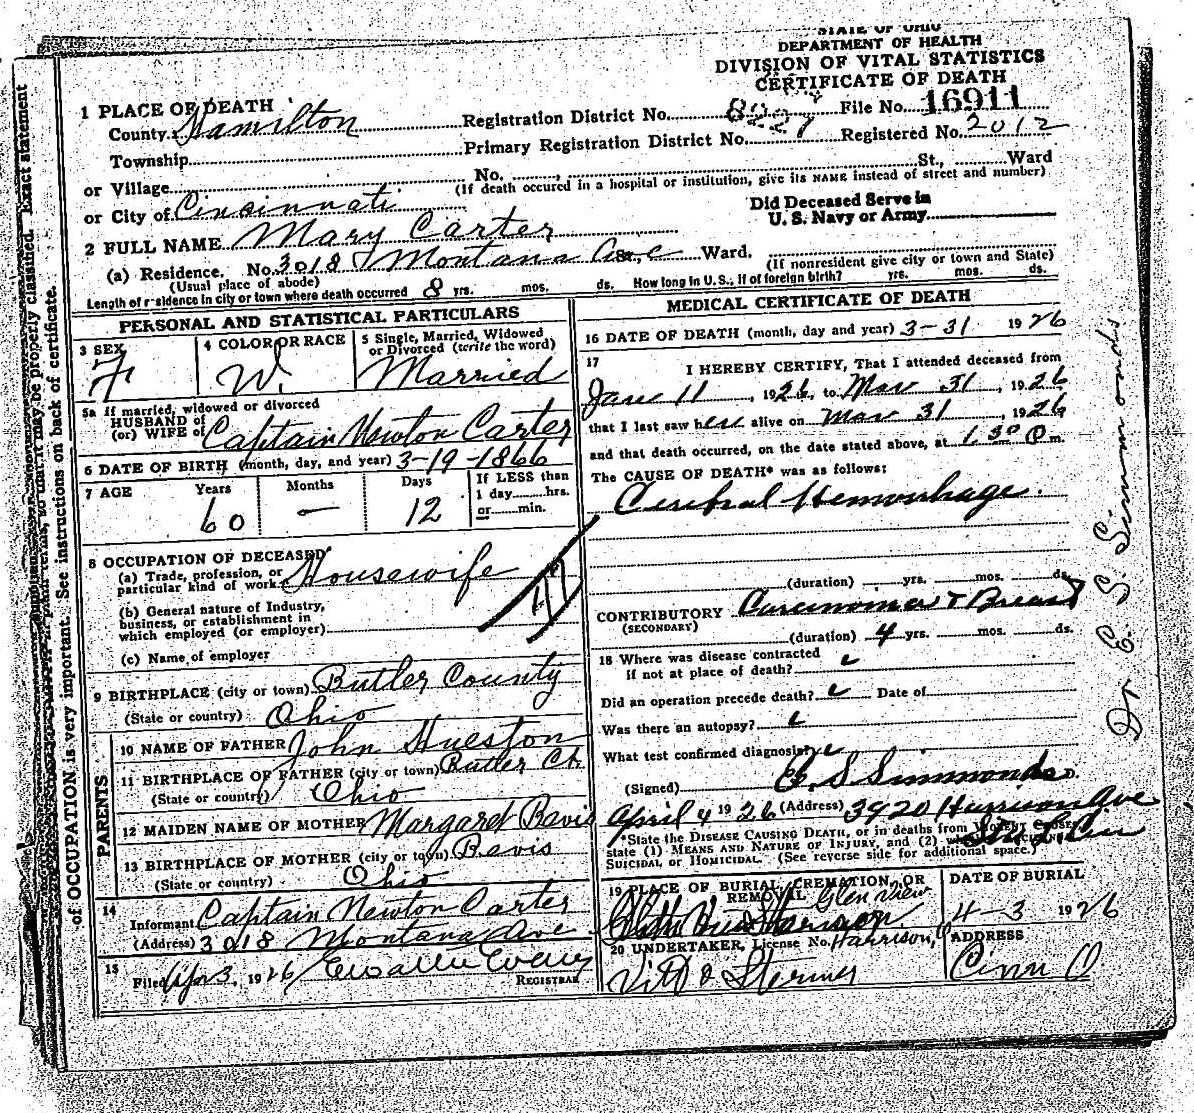 STATE OF OHIO
DEPARTMENT OF HEALTH
DIVISION OF VITAL STATISTICS
CERTIFICATE OF DEATH
1 PLACE OF DEATH
County Hamilton Registration District No. File No. 16911
Township Primary Registration District No. Registered No. 2012
or Village No. , St., Ward
(If death occured in a hospital or institution, give its NAME instead of street and number)
or City of Cincinnati
Did Deceased Serve in
U. S. Navy or Army
2 FULL NAME Mary Carter
(a) Residence. No. 3018 Montana Ave St., Ward.
(Usual place of abode) (If nonresident give city or town and State)
Length of residence in city or town where death occurred 8 yrs. mos. ds. How long in U. S., if of foreign birth? yrs. mos. ds.
PERSONAL AND STATISTICAL PARTICULARS
3 SEX
F
4 COLOR OR RACE
W.
5 Single, Married, Widowed
or Divorced (write the word)
Married
5a If married, widowed or divorced
HUSBAND of
(or) WIFE of Captain Newton Carter
6 DATE OF BIRTH (month, day, and year) 3-19-1866
7 AGE Years Months Days If LESS than
1 day hrs.
or min.
60 — 12
8 OCCUPATION OF DECEASED
(a) Trade, profession, or
particular kind of work Housewife
(b) General nature of Industry,
business, or establishment in
which employed (or employer)
(c) Name of employer
9 BIRTHPLACE (city or town) Butler County
(State or country) Ohio
PARENTS
10 NAME OF FATHER John Hueston
11 BIRTHPLACE OF FATHER (city or town) Butler Ct.
(State or country) Ohio
12 MAIDEN NAME OF MOTHER Margaret Bevis
13 BIRTHPLACE OF MOTHER (city or town) Bevis
(State or country) Ohio
14
Informant Captain Newton Carter
(Address) 3018 Montana Ave
15
Filed Apr 3, 1926
REGISTRAR
MEDICAL CERTIFICATE OF DEATH
16 DATE OF DEATH (month, day and year) 3-31 1926
17 I HEREBY CERTIFY, That I attended deceased from
Jan 11, 1926, to Mar 31, 1926
that I last saw her alive on Mar 31, 1926
and that death occurred, on the date stated above, at 1.30 P m.
The CAUSE OF DEATH* was as follows:
Cerebral Hemorrhage.
(duration) yrs. mos. ds.
CONTRIBUTORY Carcinoma Breast
(SECONDARY)
(duration) 4 yrs. mos. ds.
18 Where was disease contracted
if not at place of death?
Did an operation precede death? Date of
Was there an autopsy?
What test confirmed diagnosis?
(Signed) E. S Simmonds M. D.
April 4 1926 (Address) 3920 Harrison Ave
*State the DISEASE CAUSING DEATH, or in deaths from VIOLENT CAUSES,
state (1) MEANS AND NATURE OF INJURY, and (2)
SUICIDAL or HOMICIDAL. (See reverse side for additional space.)
19 PLACE OF BURIAL, CREMATION, OR
REMOVAL Glen View
DATE OF BURIAL
4-3 1926
20 UNDERTAKER, License No. Harrison, O
ADDRESS
Vitt & Stermer
Cinn O
Dr E S. Simmonds
classified. Exact statement
See instructions on back of certificate.
of OCCUPATION is very important.